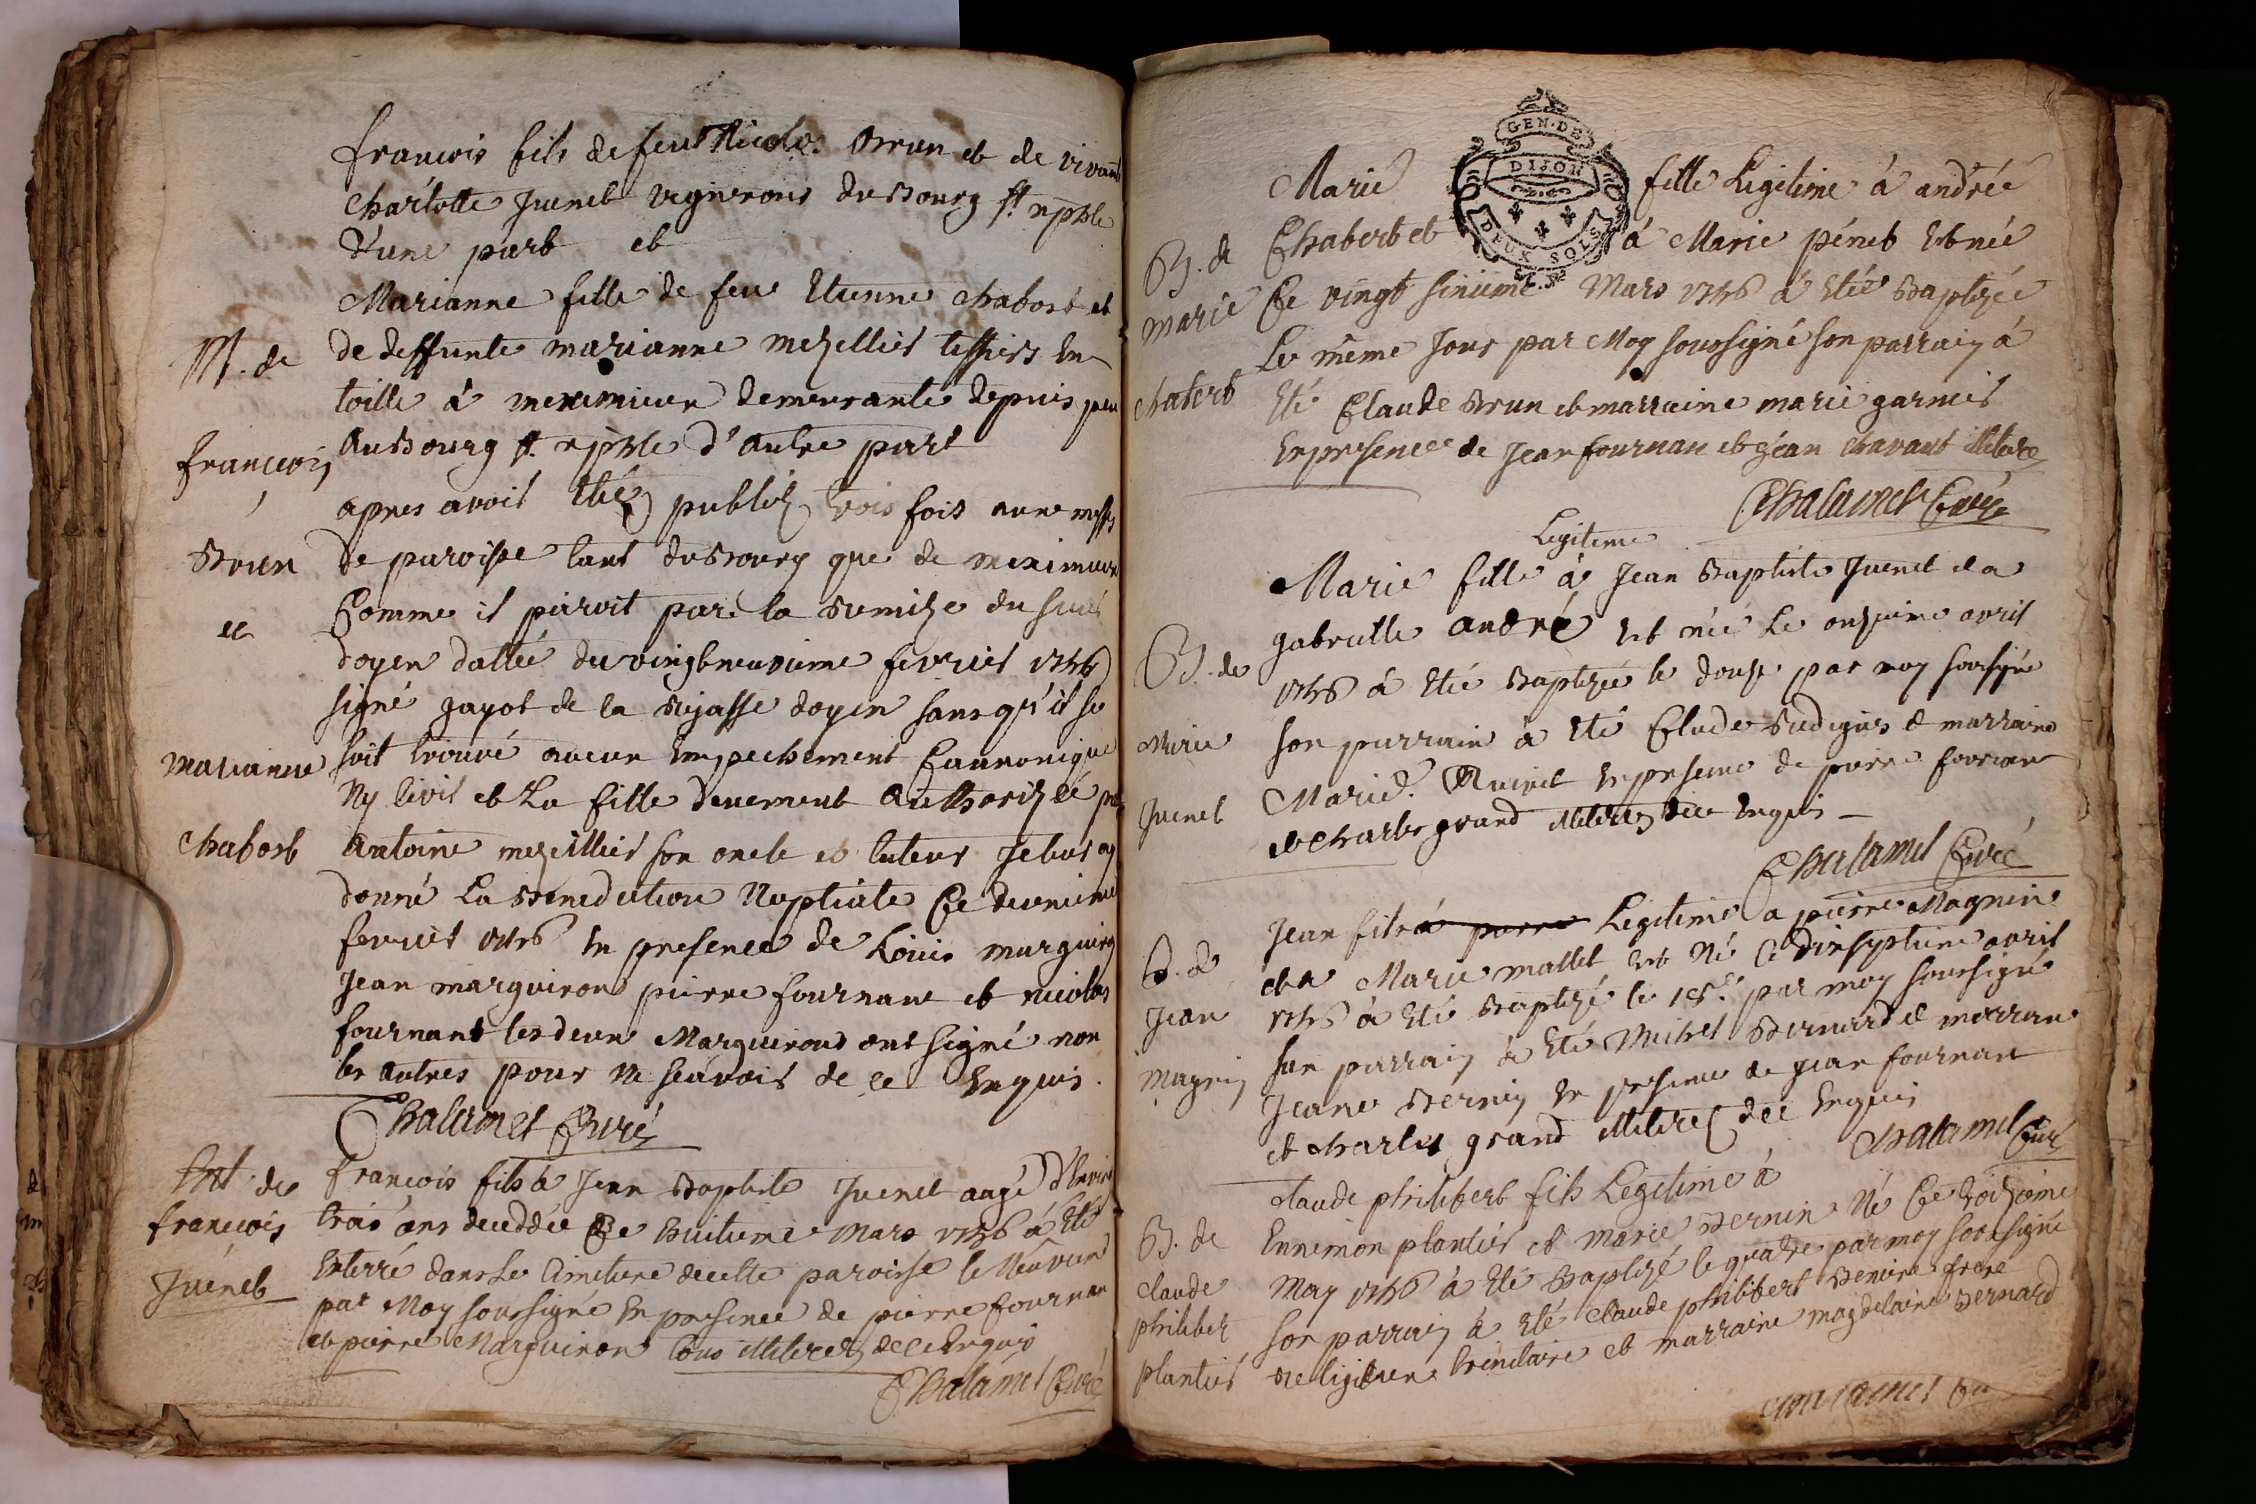 françois fils de feu Nicolas Brun et de vivante
Charlotte Juenet vignerons du Bourg st xphle
d'une part et
Marianne fille de feu Etienne Chabost et
M. de
de deffunte marianne mezellier tessiers En
toille à meximieux demeurante depuis peu
françois
au Bourg st xphle d'autre part
apres avoir Eté publiez trois fois aux messes
Brun
de paroisse tant du Bourg que de meximieux
et
Comme il paroit par la Remize du sieur
doyen dattée du vingtneuvieme fevrier 1756
signé gayot de la Rejasse doyen sans qu'il se
marianne
soit trouvé aucun Empechement Cannonique
Ny Civil et La fille duement authorizée par
Chabost
antoine mezellier son oncle et tuteur Je leur ay
donné La Benediction Nuptiale Ce
fevrier 1756 En presence de Louis marguiron
Jean marguiron pierre fournant et nicolas
fournant les deux Marguirons ont signé non
les autres pour ne sçavoir de ce Enquis.
Chalamel Curé
Ent. de
françois fils à Jean Baptiste Juenet aagé d'Environ
françois
trois ans decedée Ce huitieme Mars 1756 à Eté
Juenet
Enterré dans Le Cimetiere de cette paroisse le Neuvieme
par Moy soussigné En presence de pierre fournan
et pierre Marguiron tous illiterez de ce Enquis
Chalamel Curé
GEN. DE
DIJON
DEUX SOLS
Marie fille Legitime à andrée
B. de
Chabert et à Marie pénet Est née
marie
Ce vingt sixieme Mars 1756 à Etée Baptizée
Le même Jour par Moy soussigné son parrain à
chabert
Eté Claude Brun et marraine marie garnier
En presence de Jean fournan et Jean Chavant illiterez
Chalamel Curé
Legitime
Marie fille à Jean Baptiste Juenet et a
B. de
gabrielle andré Est née Le onzieme avril
1756 à Eté Baptizée le douze par moy soussigné
Marie
son parrain à Eté Claude et marraine
Marie En presence de pierre fournant
Juenet
et Charles grand illiterez de ce Enquis
Chalamel Curé
Jean fils à pierre Legitime a pierre Magnin
B. de
et a Marie mallet Est Né Le dixseptieme avril
Jean
1756 à Eté Baptizé le 18e par moy soussigné
son parrain à Eté Michel Bernard et marraine
magnin
Jeane Bernin En presence de Jean fournant
et Charles grand illiterez de ce Enquis
Chalamel Curé
Claude philibert fils Legitime à
B. de
Ennemon plantier et Marie Bernin Né Ce troizieme
claude
May 1756 à Eté Baptizé le quatre par moy soussigné
philibert
son parrain à Eté Claude philibert frere
plantier
Religieux trinitaire et marraine magdelaine Bernard
Chalamel Cu